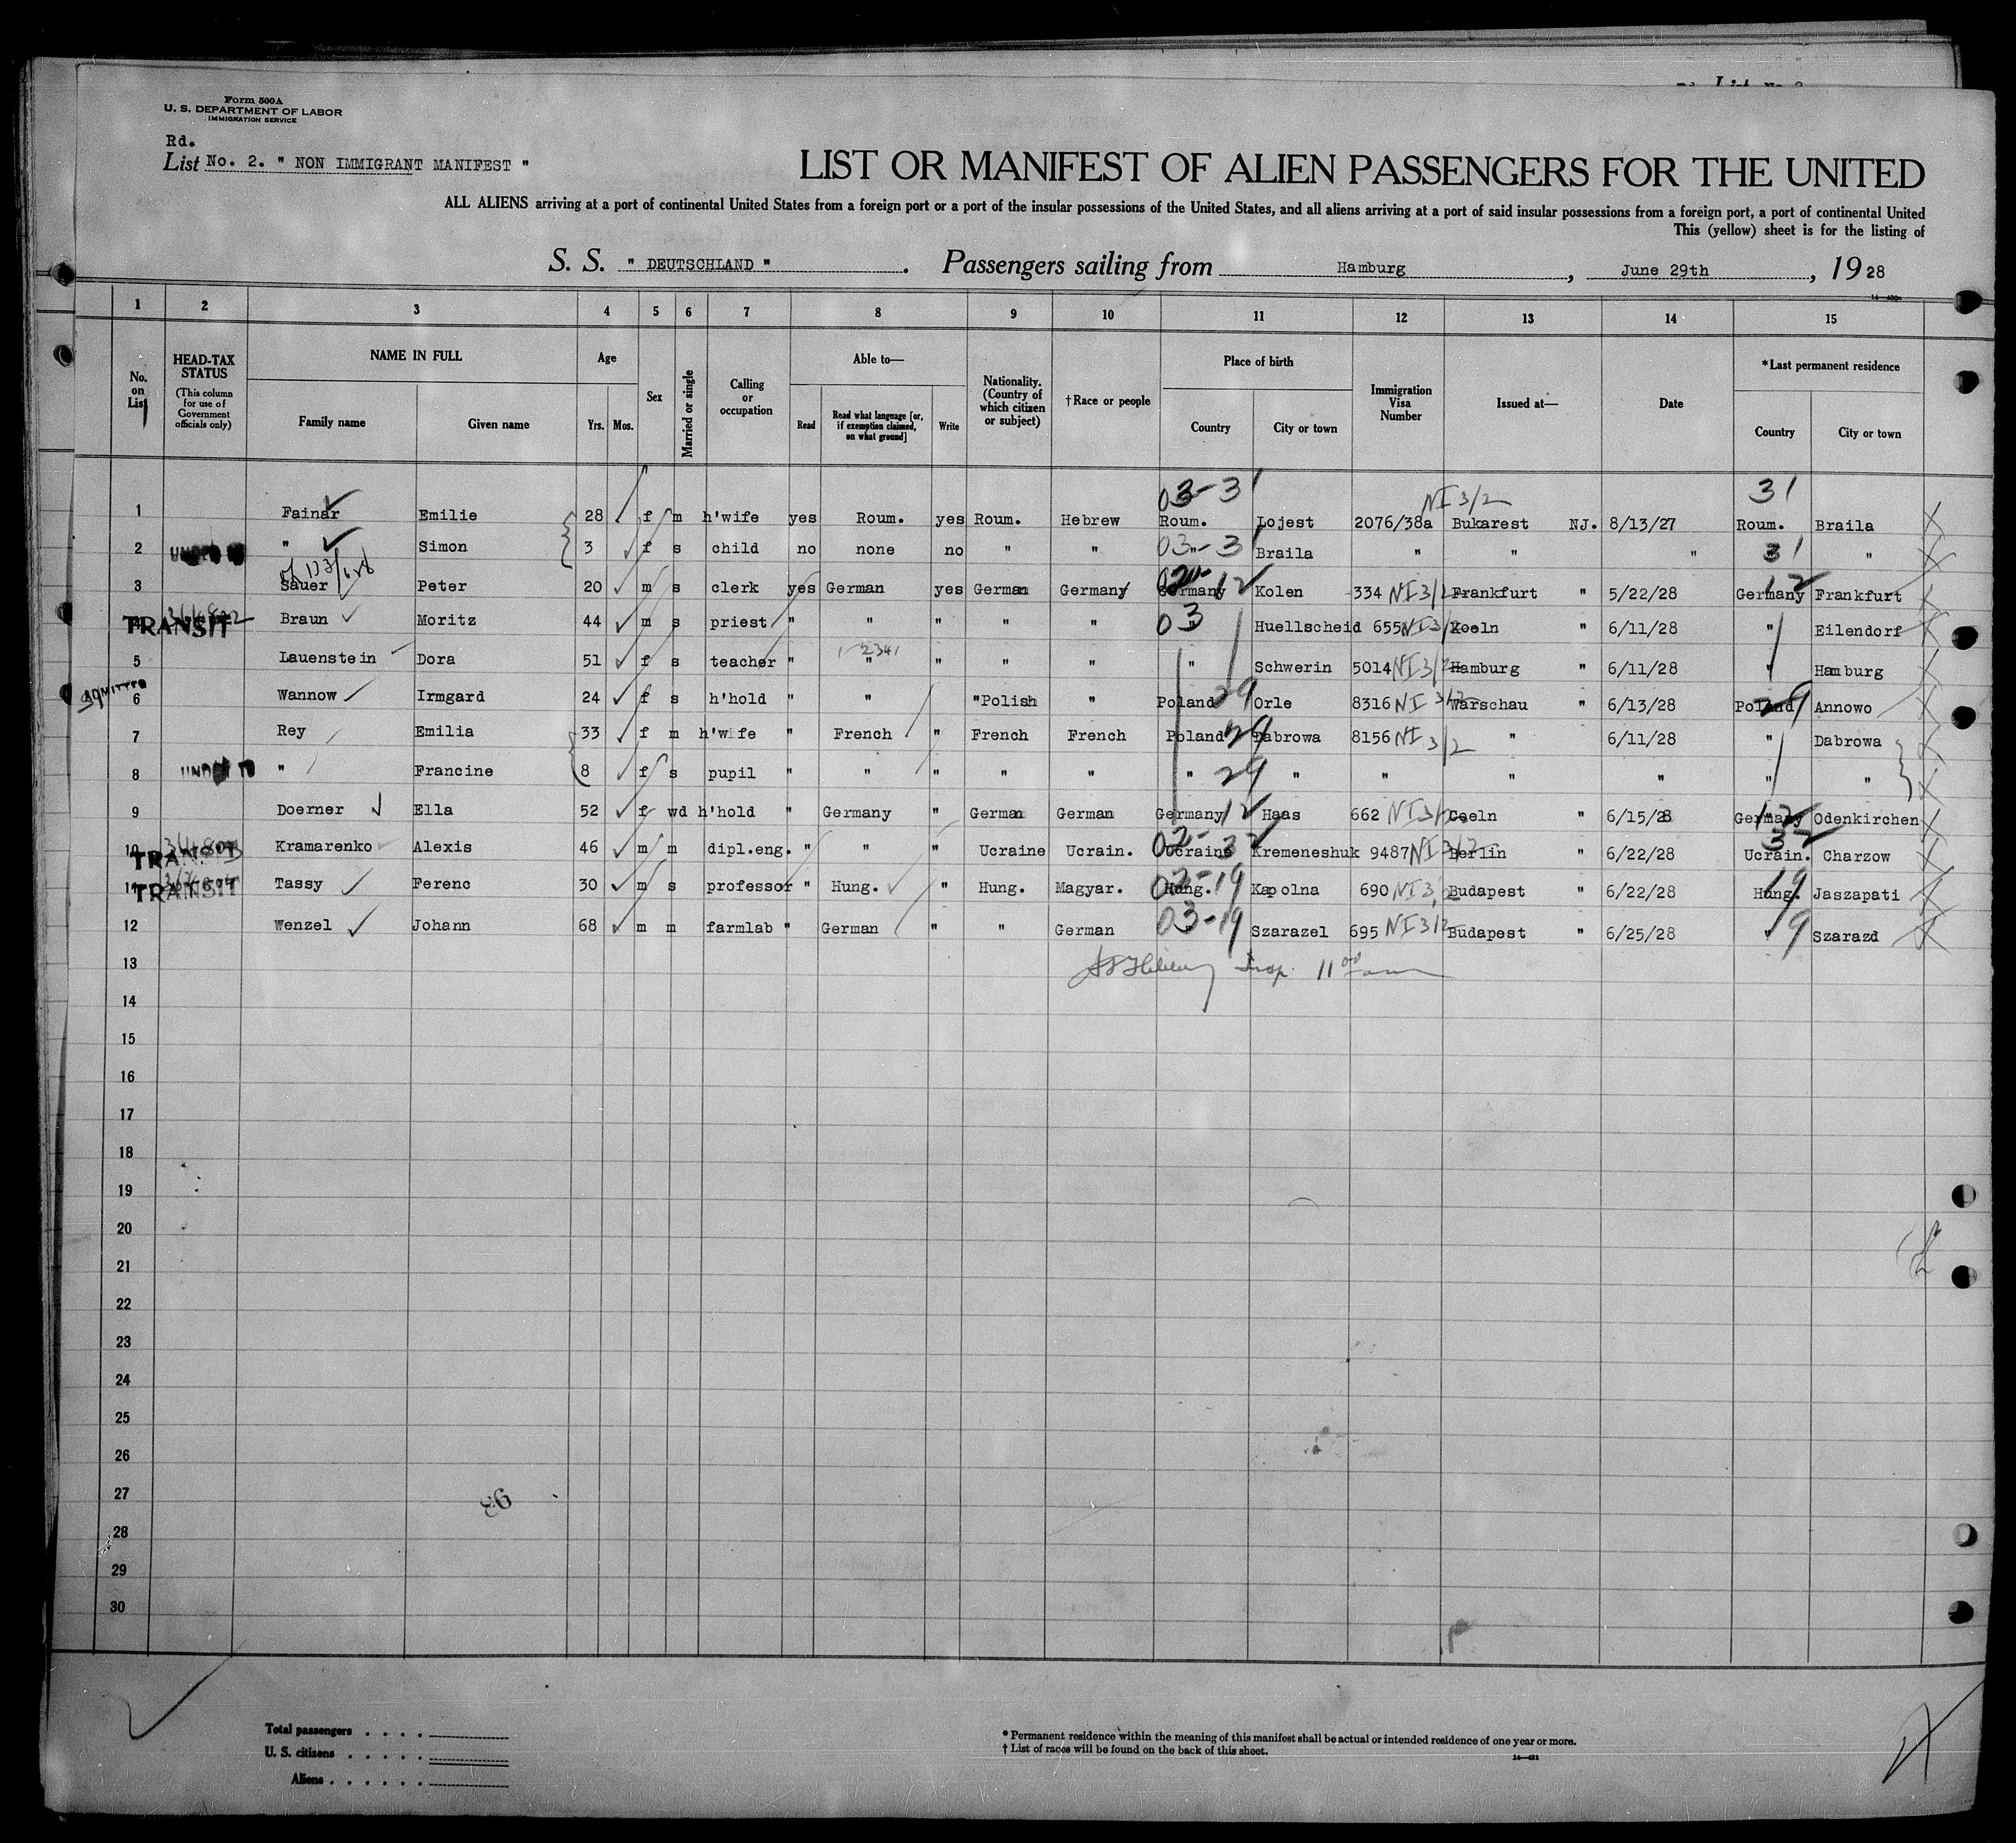 Form 500A
U. S. DEPARTMENT OF LABOR
IMMIGRATION SERVICE
Rd.
List No. 2. " NON IMMIGRANT MANIFEST "
LIST OR MANIFEST OF ALIEN PASSENGERS FOR THE UNITED
ALL ALIENS arriving at a port of continental United States from a foreign port or a port of the insular possessions of the United States, and all aliens arriving at a port of said insular possessions from a foreign port, a port of continental United
This (yellow) sheet is for the listing of
S. S. " DEUTSCHLAND " . Passengers sailing from Hamburg , June 29th , 1928
1 2 3 4 5 6 7 8 9 10 11 12 13 14 15
No. on List
HEAD-TAX STATUS (This column for use of Government officials only)
NAME IN FULL Family name Given name
Age Yrs. Mos.
Sex
Married or single
Calling or occupation
Able to— Read Read what language [or, if exemption claimed, on what ground] Write
Nationality. (Country of which citizen or subject)
†Race or people
Place of birth Country City or town
Immigration Visa Number
Issued at—
Date
*Last permanent residence Country City or town
03-31 NI 3/2 31
1 Fainar Emilie 28 f m h'wife yes Roum. yes Roum. Hebrew Roum. Lojest 2076/38a Bukarest NJ. 8/13/27 Roum. Braila
2 UNDER " Simon 3 f s child no none no " " 03-31 " Braila " " " 31 " "
3 Sauer Peter 20 m s clerk yes German yes German Germany Germany 12 Kolen 334 NI 3/2 Frankfurt " 5/22/28 Germany 12 Frankfurt
4 TRANSIT Braun Moritz 44 m s priest " " " " " 03 " Huellscheid 655 NI 3/2 Koeln " 6/11/28 " Eilendorf
5 Lauenstein Dora 51 f s teacher " " " " " " Schwerin 5014 NI 3/2 Hamburg " 6/11/28 " Hamburg
ADMITTED
6 Wannow Irmgard 24 f s h'hold " " " Polish " Poland 29 Orle 8316 NI 3/2 Warschau " 6/13/28 Poland 29 Annowo
7 Rey Emilia 33 f m h'wife " French " French French Poland 29 Dabrowa 8156 NI 3/2 " 6/11/28 " Dabrowa
8 UNDER " Francine 8 f s pupil " " " " " " 29 " " " " " "
9 Doerner Ella 52 f wd h'hold " Germany " German German Germany 12 Haas 662 NI 3/2 Coeln " 6/15/28 Germany 12 Odenkirchen
10 TRANSIT Kramarenko Alexis 46 m m dipl.eng. " " " Ucraine Ucrain. 02-32 Ucraine Kremeneshuk 9487 NI 3/2 Berlin " 6/22/28 32 Ucrain. Charzow
11 TRANSIT Tassy Ferenc 30 m s professor " Hung. " Hung. Magyar. 02-19 Hung. Kapolna 690 NI 3/2 Budapest " 6/22/28 Hung. 19 Jaszapati
12 Wenzel Johann 68 m m farmlab " German " " German 03-19 Szarazel 695 NI 3/2 Budapest " 6/25/28 " 19 Szarazd
13 Insp. 11 00 am
14
15
16
17
18
19
20
21
22
23
24
25
26
27
28
29
30
93
Total passengers . . . .
U. S. citizens . . . . .
Aliens . . . . . .
* Permanent residence within the meaning of this manifest shall be actual or intended residence of one year or more.
† List of races will be found on the back of this sheet.